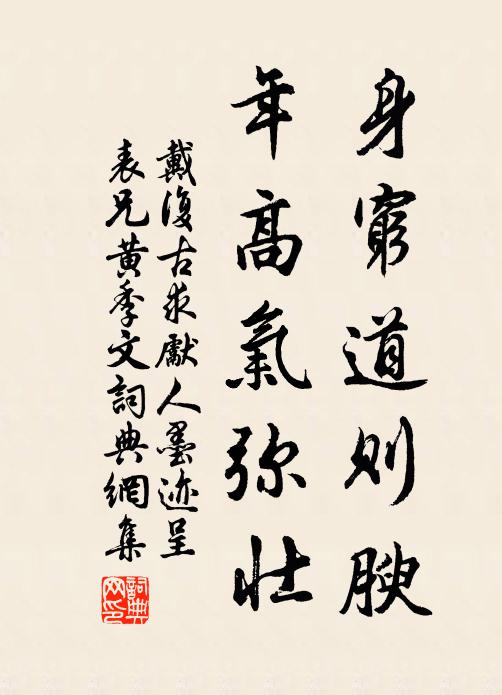 身窮道則腴
年高氣弥壯
戴復古求獻人墨迹呈
表兄黄季文詞典網集
詞典网印